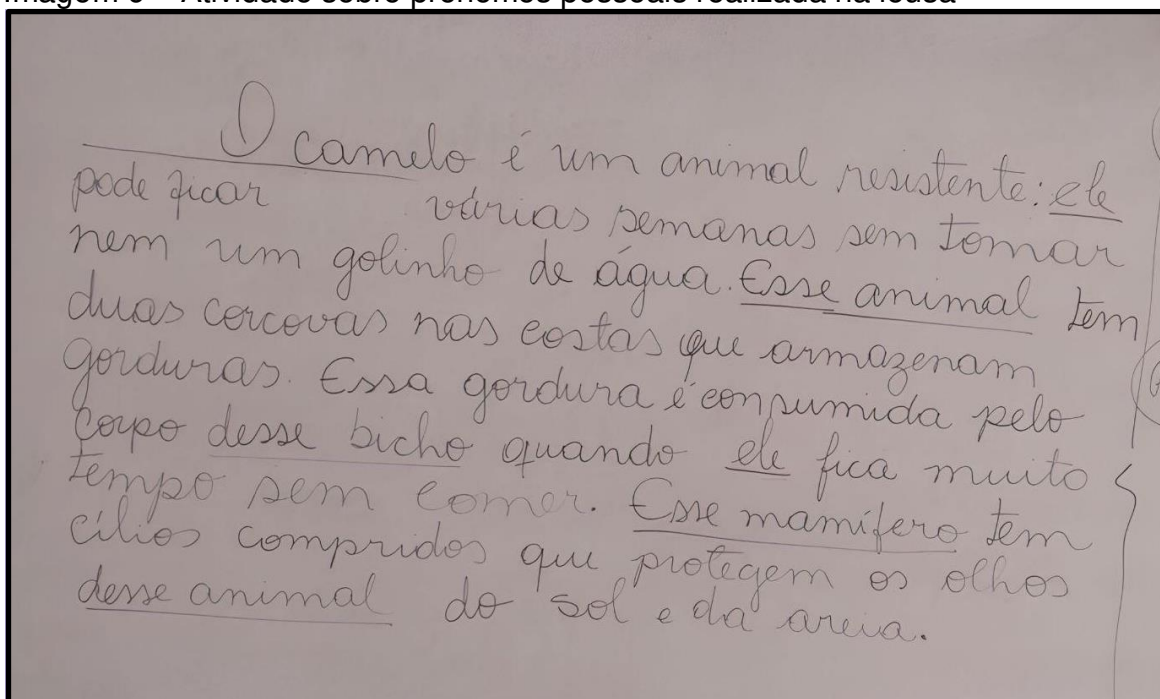 O camelo é um animal resistente: ele
pode ficar várias semanas sem tomar
nem um golinho de água. Esse animal tem
duas corcovas nas costas que armazenam
gorduras. Essa gordura é consumida pelo
corpo desse bicho quando ele fica muito
tempo sem comer. Esse mamífero tem
cílios compridos que protegem os olhos
desse animal do sol e da areia.